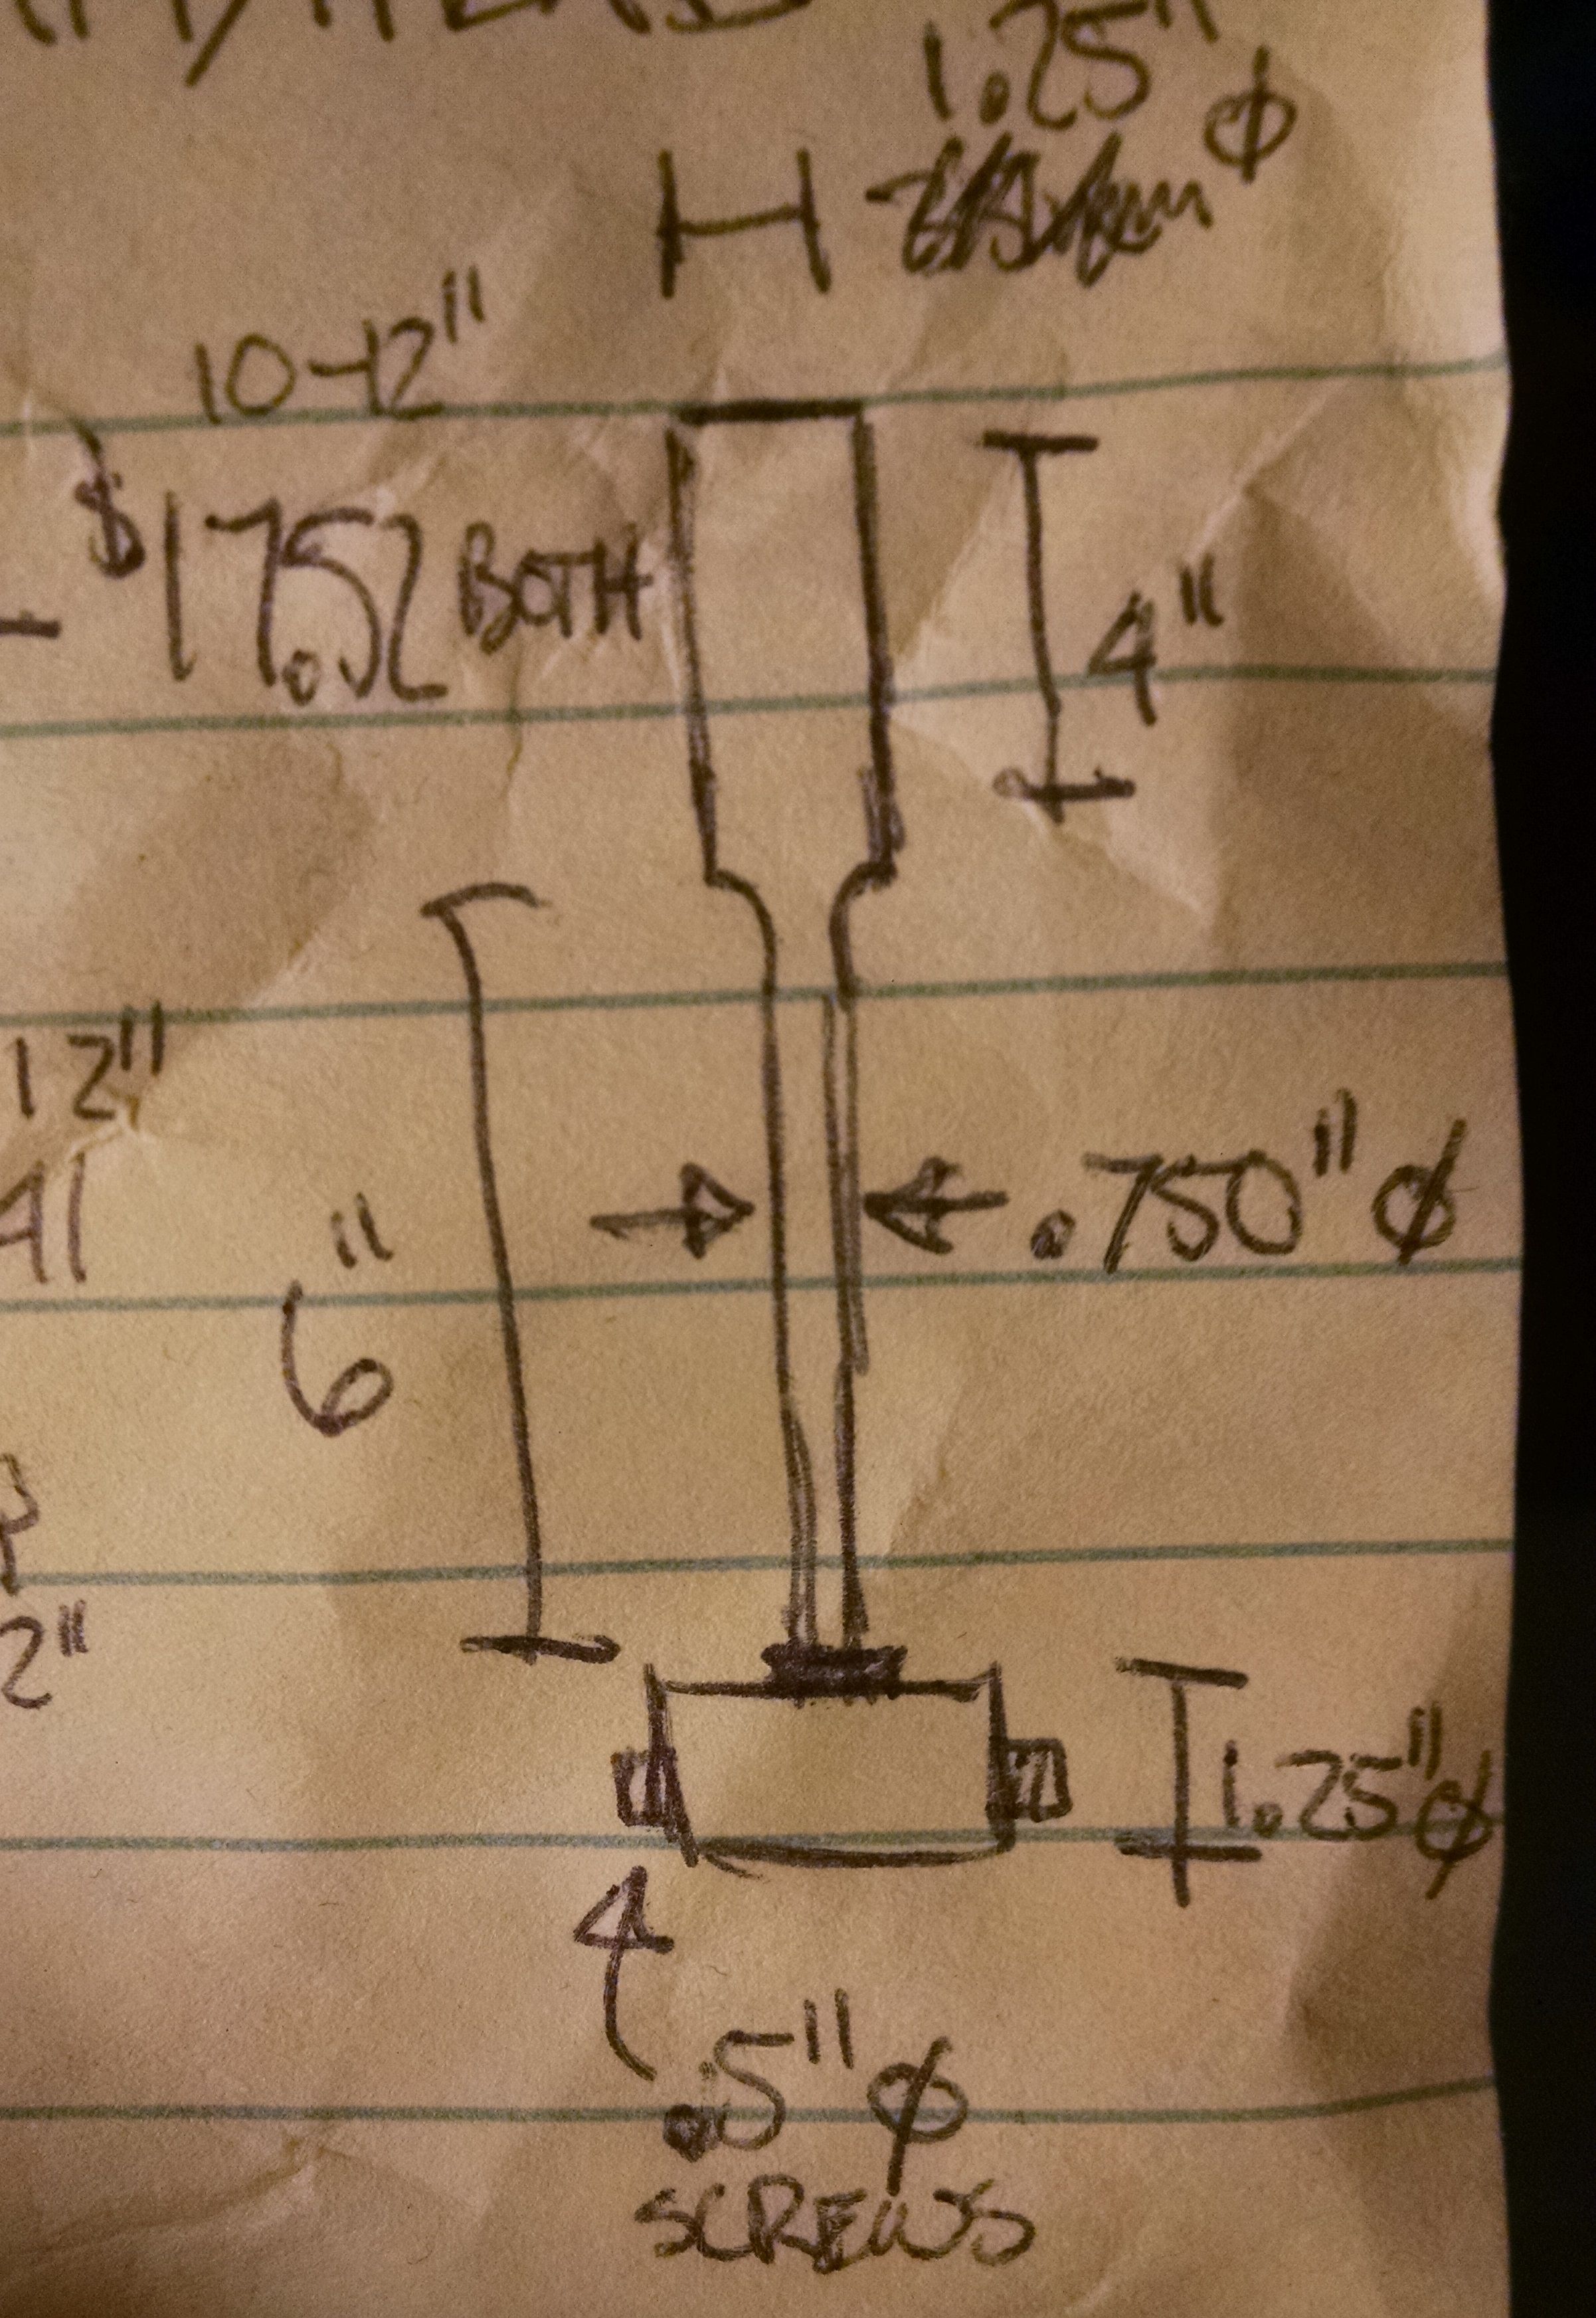 1.25" ϕ
10-12"
$17.52 BOTH
4"
12"
41
.750" ϕ
6"
2"
1.25" ϕ
.5" ϕ
SCREWS